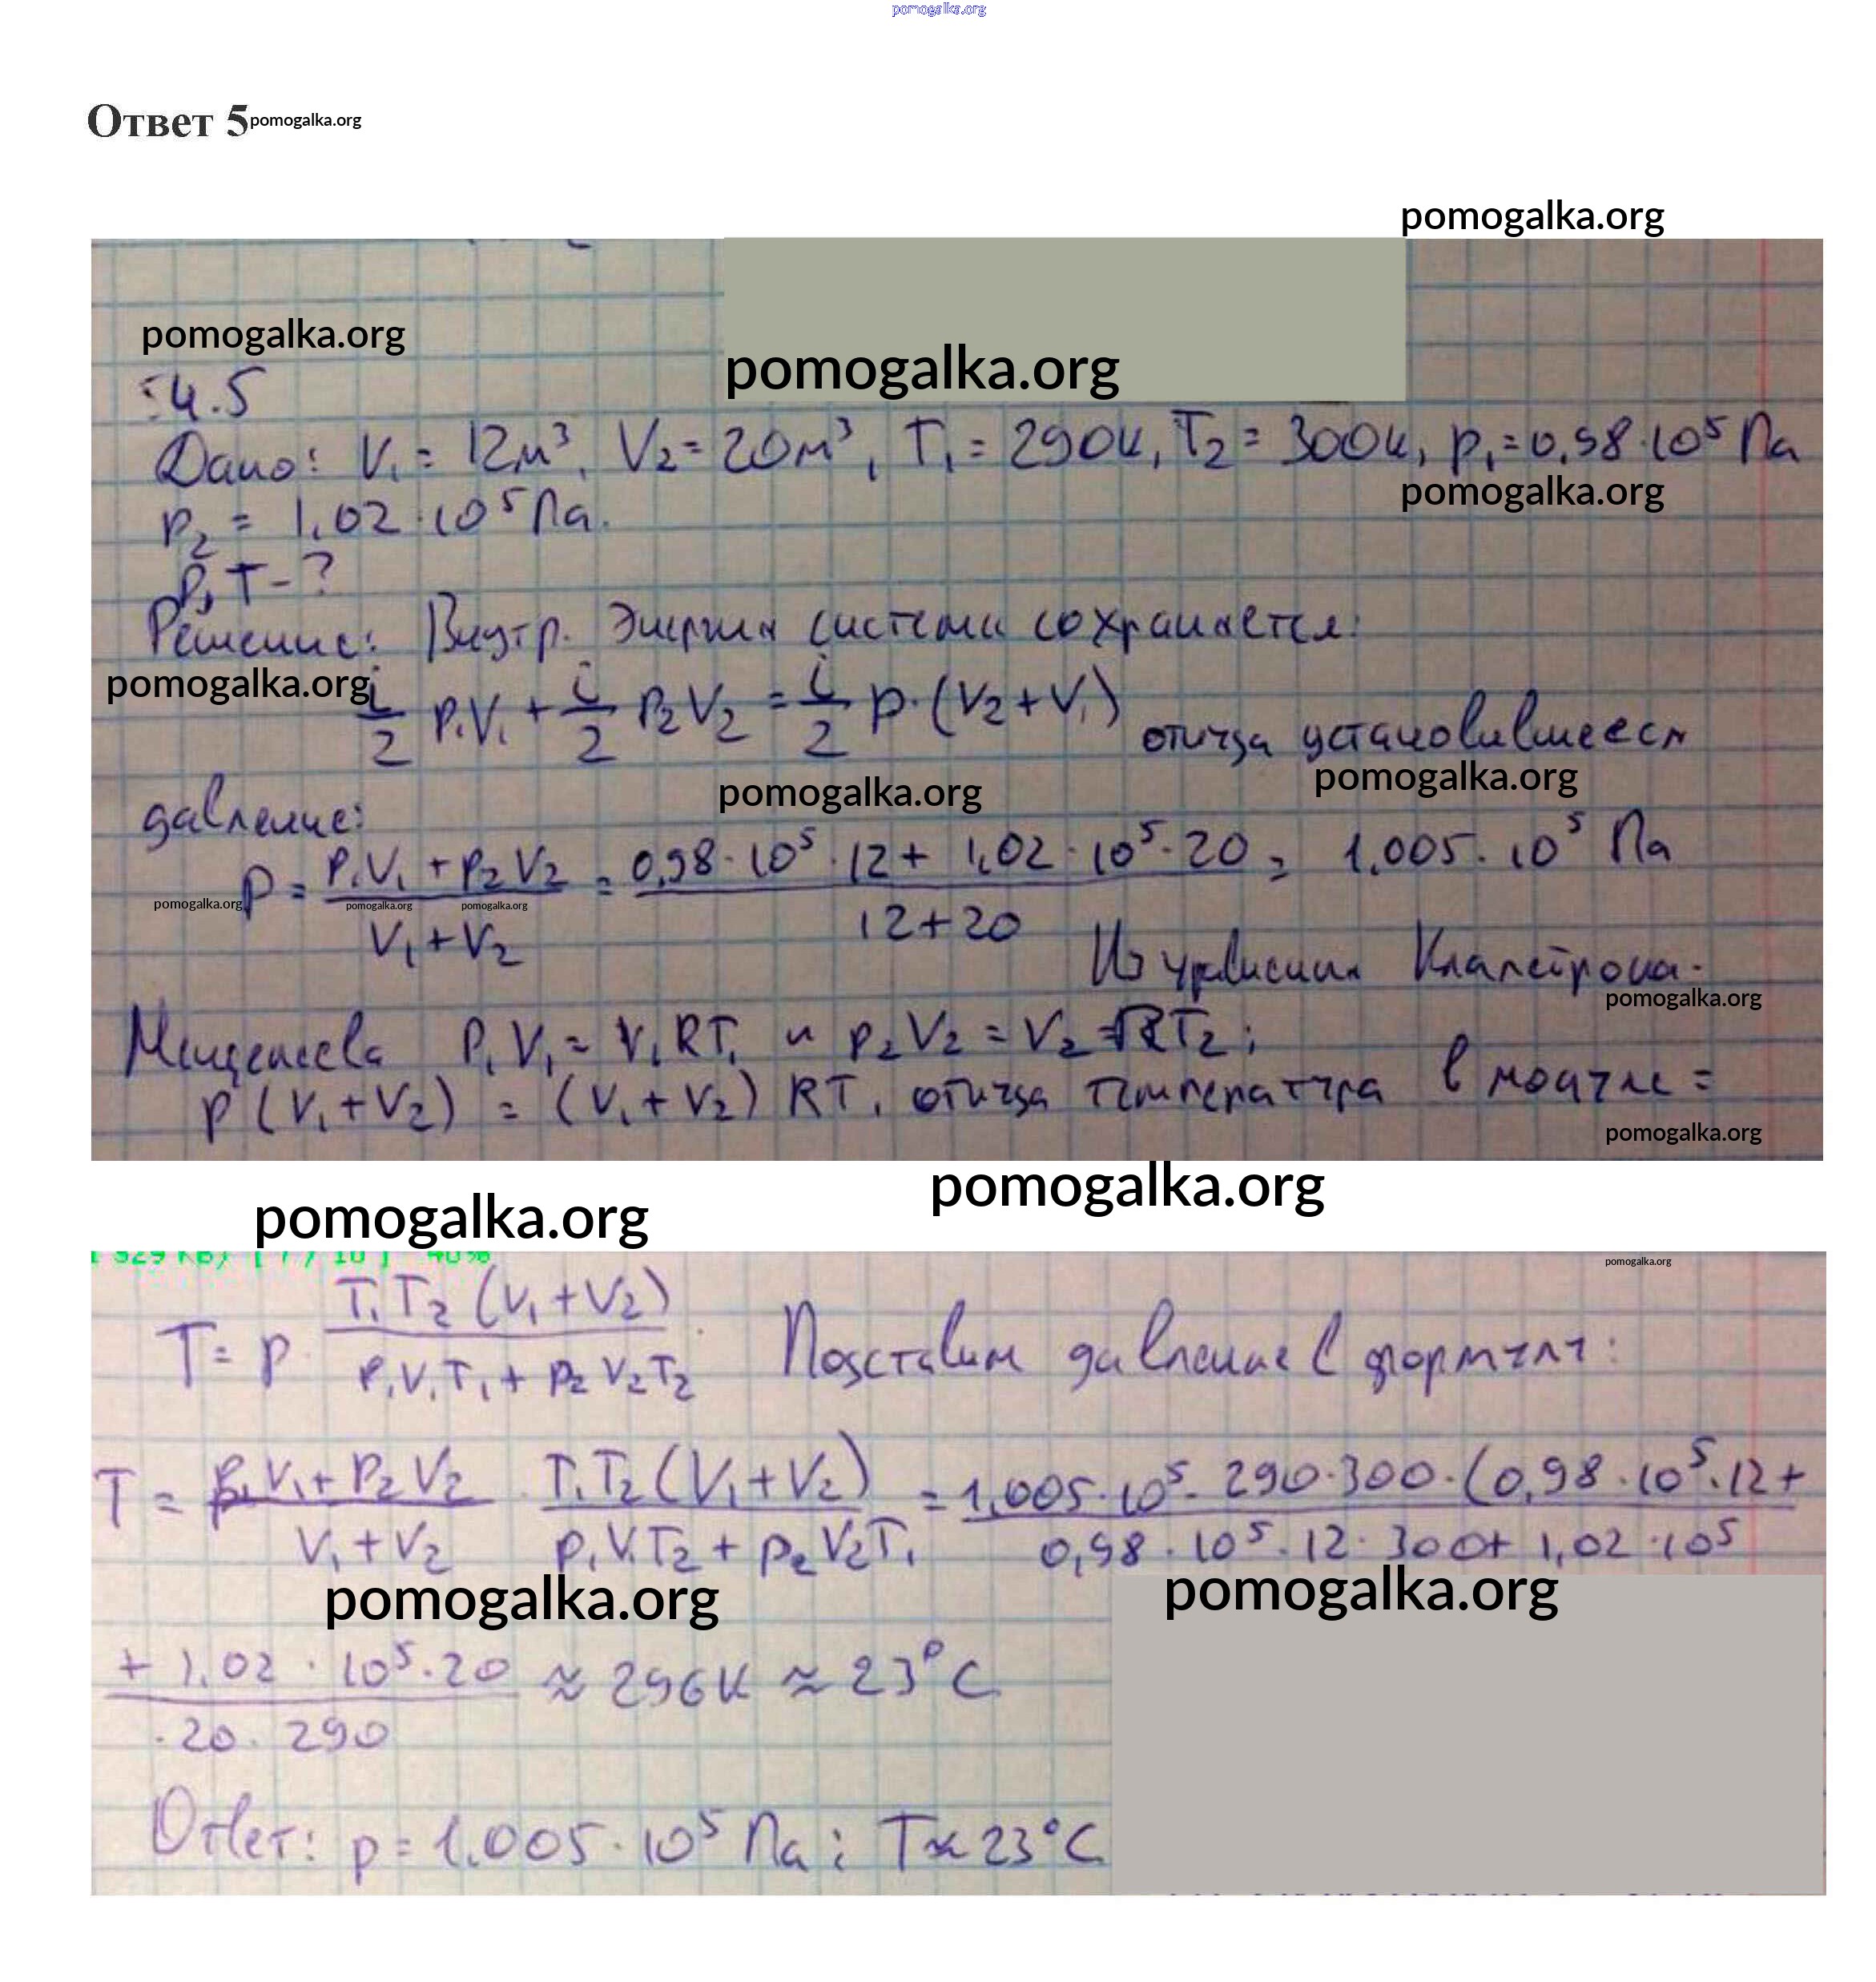 pomogalka.org
Ответ 5 pomogalka.org
pomogalka.org
pomogalka.org
pomogalka.org
4.5
Дано: V₁ = 12м³, V₂ = 20м³, T₁ = 290К, T₂ = 300К, p₁ = 0,98·10⁵ Па
pomogalka.org
p₂ = 1,02·10⁵ Па.
P, T - ?
Решение: Внутр. Энергия системы сохраняется:
pomogalka.org
i/2 p₁V₁ + i/2 p₂V₂ = i/2 p·(V₂+V₁) откуда установившееся
pomogalka.org pomogalka.org
давление:
p = (p₁V₁ + p₂V₂)/(V₁+V₂) = (0,98·10⁵·12 + 1,02·10⁵·20)/(12+20) = 1,005·10⁵ Па
pomogalka.org pomogalka.org pomogalka.org
Из уравнения Клапейрона-
pomogalka.org
Менделеева p₁V₁ = ν₁RT₁ и p₂V₂ = ν₂RT₂;
p(V₁+V₂) = (ν₁+ν₂)RT, откуда температура в модуле =
pomogalka.org
pomogalka.org
pomogalka.org
pomogalka.org
T = p · T₁T₂(V₁+V₂)/(p₁V₁T₁ + p₂V₂T₂). Подставим давление в формулу:
T = (p₁V₁ + p₂V₂)/(V₁+V₂) · T₁T₂(V₁+V₂)/(p₁V₁T₂ + p₂V₂T₁) = 1,005·10⁵·290·300·(0,98·10⁵·12 + / 0,98·10⁵·12·300 + 1,02·10⁵
pomogalka.org pomogalka.org
+ 1,02·10⁵·20 / ·20·290 ≈ 296К ≈ 23°C
Ответ: p = 1.005·10⁵ Па; T ≈ 23°C